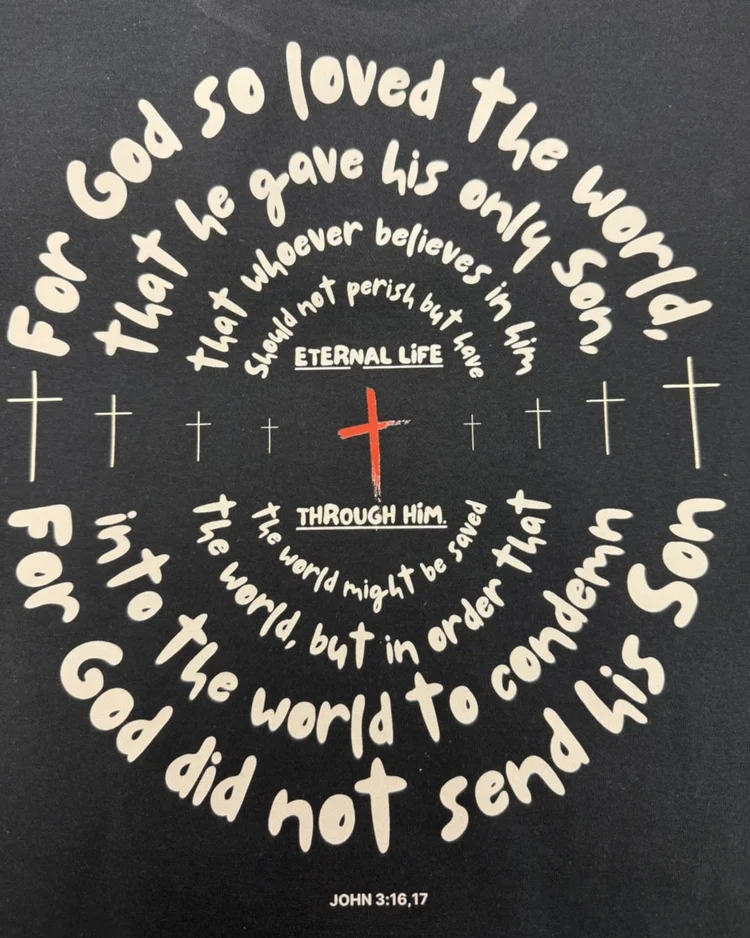 For God so loved the world,
that he gave his only Son,
that whoever believes in him
Should not perish but have
ETERNAL LiFE
For God did not send his Son
into the world to condemn
the world, but in order that
the world might be saved
THROUGH HiM.
JOHN 3:16,17